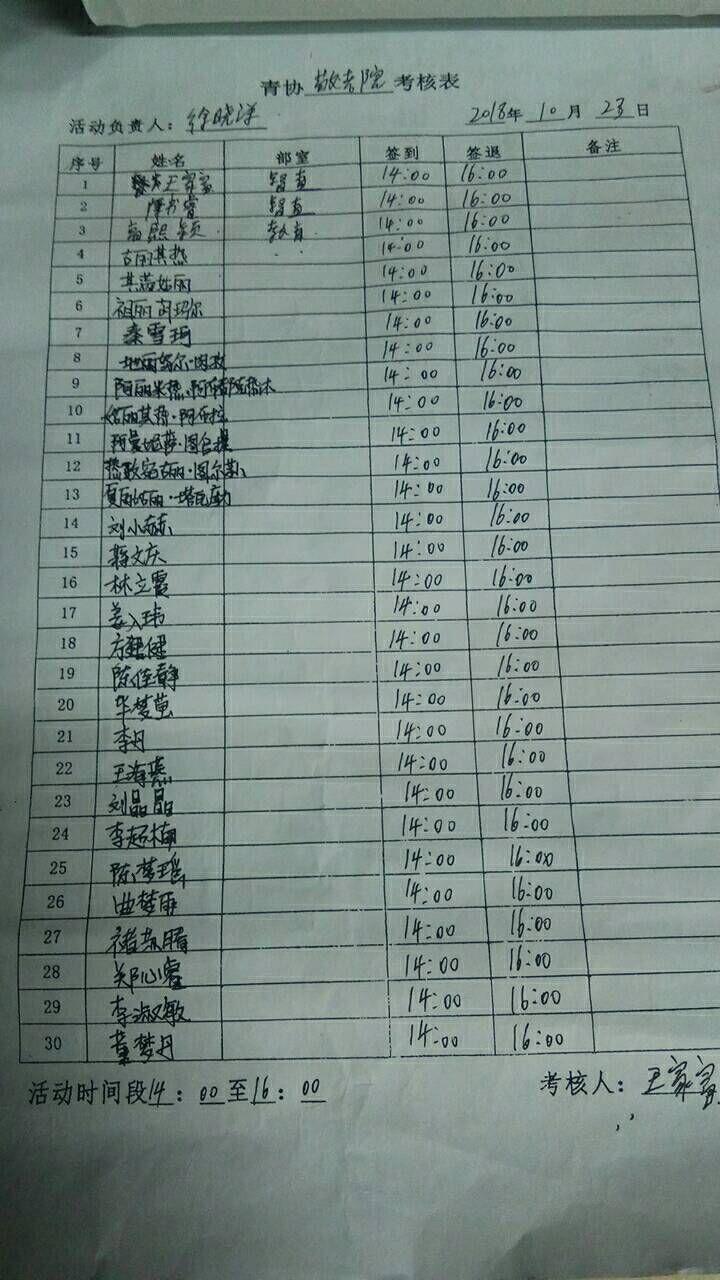 青协 敬老院 考核表
活动负责人：徐晓洋 2018年 10 月 23 日
序号 姓名 部室 签到 签退 备注
1 王家富 14:00 16:00
2 14:00 16:00
3 14:00 16:00
4 古丽其热 14:00 16:00
5 14:00 16:00
6 祖丽胡玛尔 14:00 16:00
7 秦雪珂 14:00 16:00
8 14:00 16:00
9 14:00 16:00
10 14:00 16:00
11 14:00 16:00
12 14:00 16:00
13 14:00 16:00
14 刘小赫 14:00 16:00
15 蒋文庆 14:00 16:00
16 林立霞 14:00 16:00
17 姜入玮 14:00 16:00
18 14:00 16:00
19 陈佳静 14:00 16:00
20 华梦莹 14:00 16:00
21 李丹 14:00 16:00
22 王海燕 14:00 16:00
23 刘晶晶 14:00 16:00
24 李超楠 14:00 16:00
25 陈梦瑶 14:00 16:00
26 曲梦雨 14:00 16:00
27 14:00 16:00
28 郑心睿 14:00 16:00
29 李淑敏 14:00 16:00
30 董梦丹 14:00 16:00
活动时间段14：00至16：00 考核人：王家富